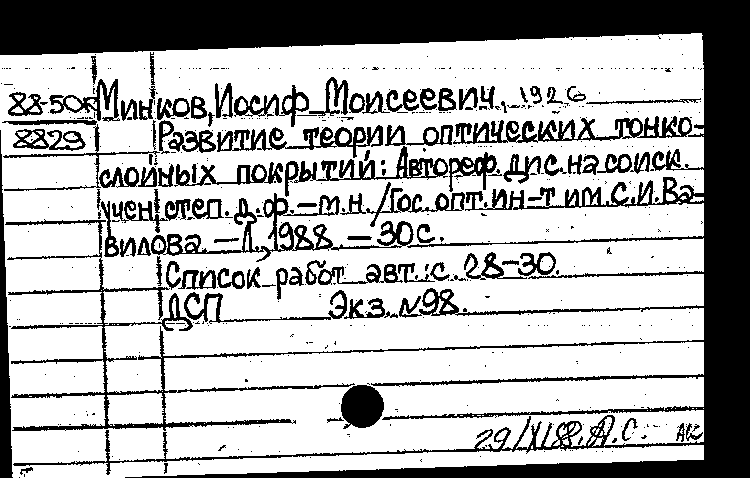 88-50к Минков, Иосиф Моисеевич, 1926
8829 Развитие теории оптических тонко-
слойных покрытий: Автореф. дис. на соиск.
учен. степ. д. ф.-м.н. / Гос. опт. ин-т им. С.И. Ва-
вилова. — Л., 1988. — 30 с.
Список работ авт.: с. 28-30.
ДСП Экз. №98.
29/XI 88. Л.С.